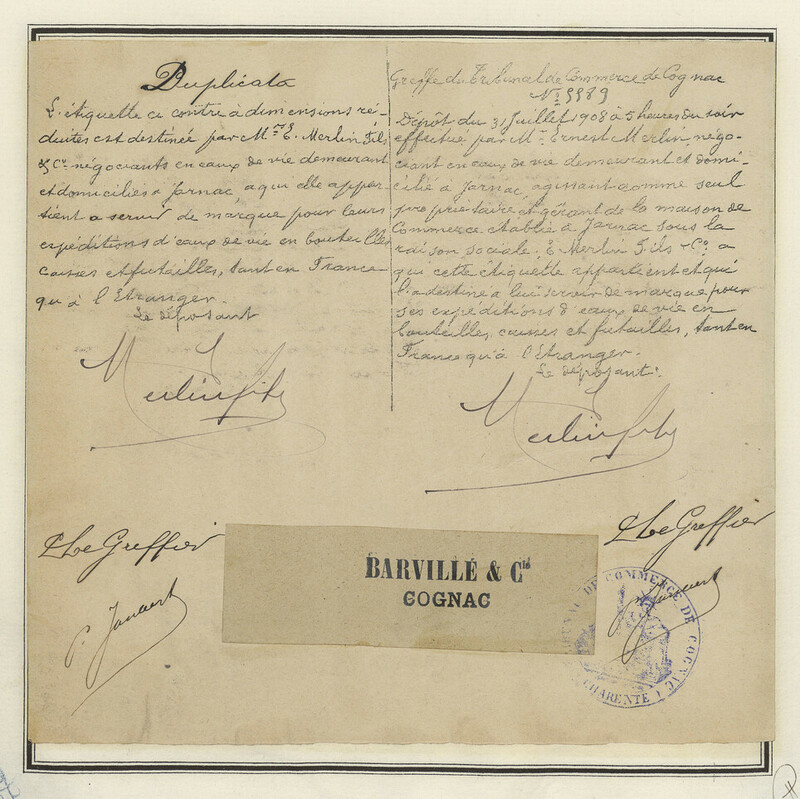 Duplicata
L'étiquette ci contre à dimensions ré-
duites est destinée par Mrs E. Merlin Fils
& Co négociants en eaux de vie demeurant
et domiciliés à Jarnac, a qui elle appar-
tient a servir de marque pour leurs
expéditions d'eaux de vie en bouteilles
caisses et futailles, tant en France
qu'à l'Etranger.
Le déposant
Merlin fils
Le Greffier
P. Jannert
Greffe du Tribunal de Commerce de Cognac
No 9989
Dépôt du 31 Juillet 1908 à 5 heures du soir
effectué par Mr Ernest Merlin, négo-
ciant en eaux de vie demeurant et domi-
cilié à Jarnac, agissant comme seul
propriétaire et gérant de la maison de
Commerce établie à Jarnac sous la
raison sociale: E. Merlin Fils & Co, a
qui cette étiquette appartient et qui
l'a destiné a leur servir de marque pour
ses expéditions d'eaux de vie en
bouteilles, caisses et futailles, tant en
France qu'à l'Etranger.
Le déposant:
Merlin fils
Le Greffier
BARVILLÉ & Cie
COGNAC
TRIBUNAL DE COMMERCE DE COGNAC
CHARENTE